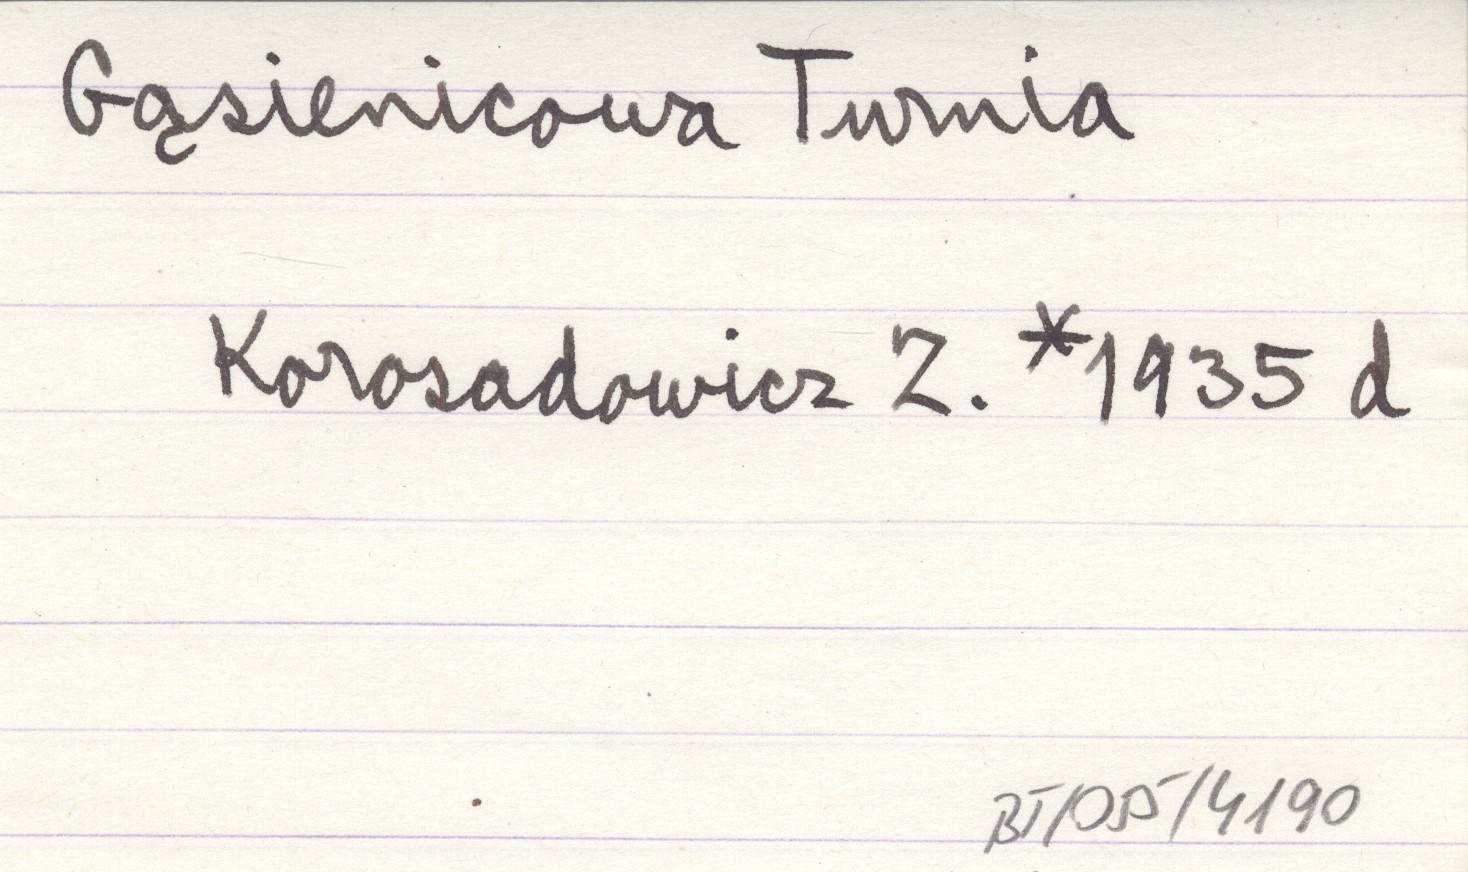 Gąsienicowa Turnia
Korosadowicz Z. *1935 d